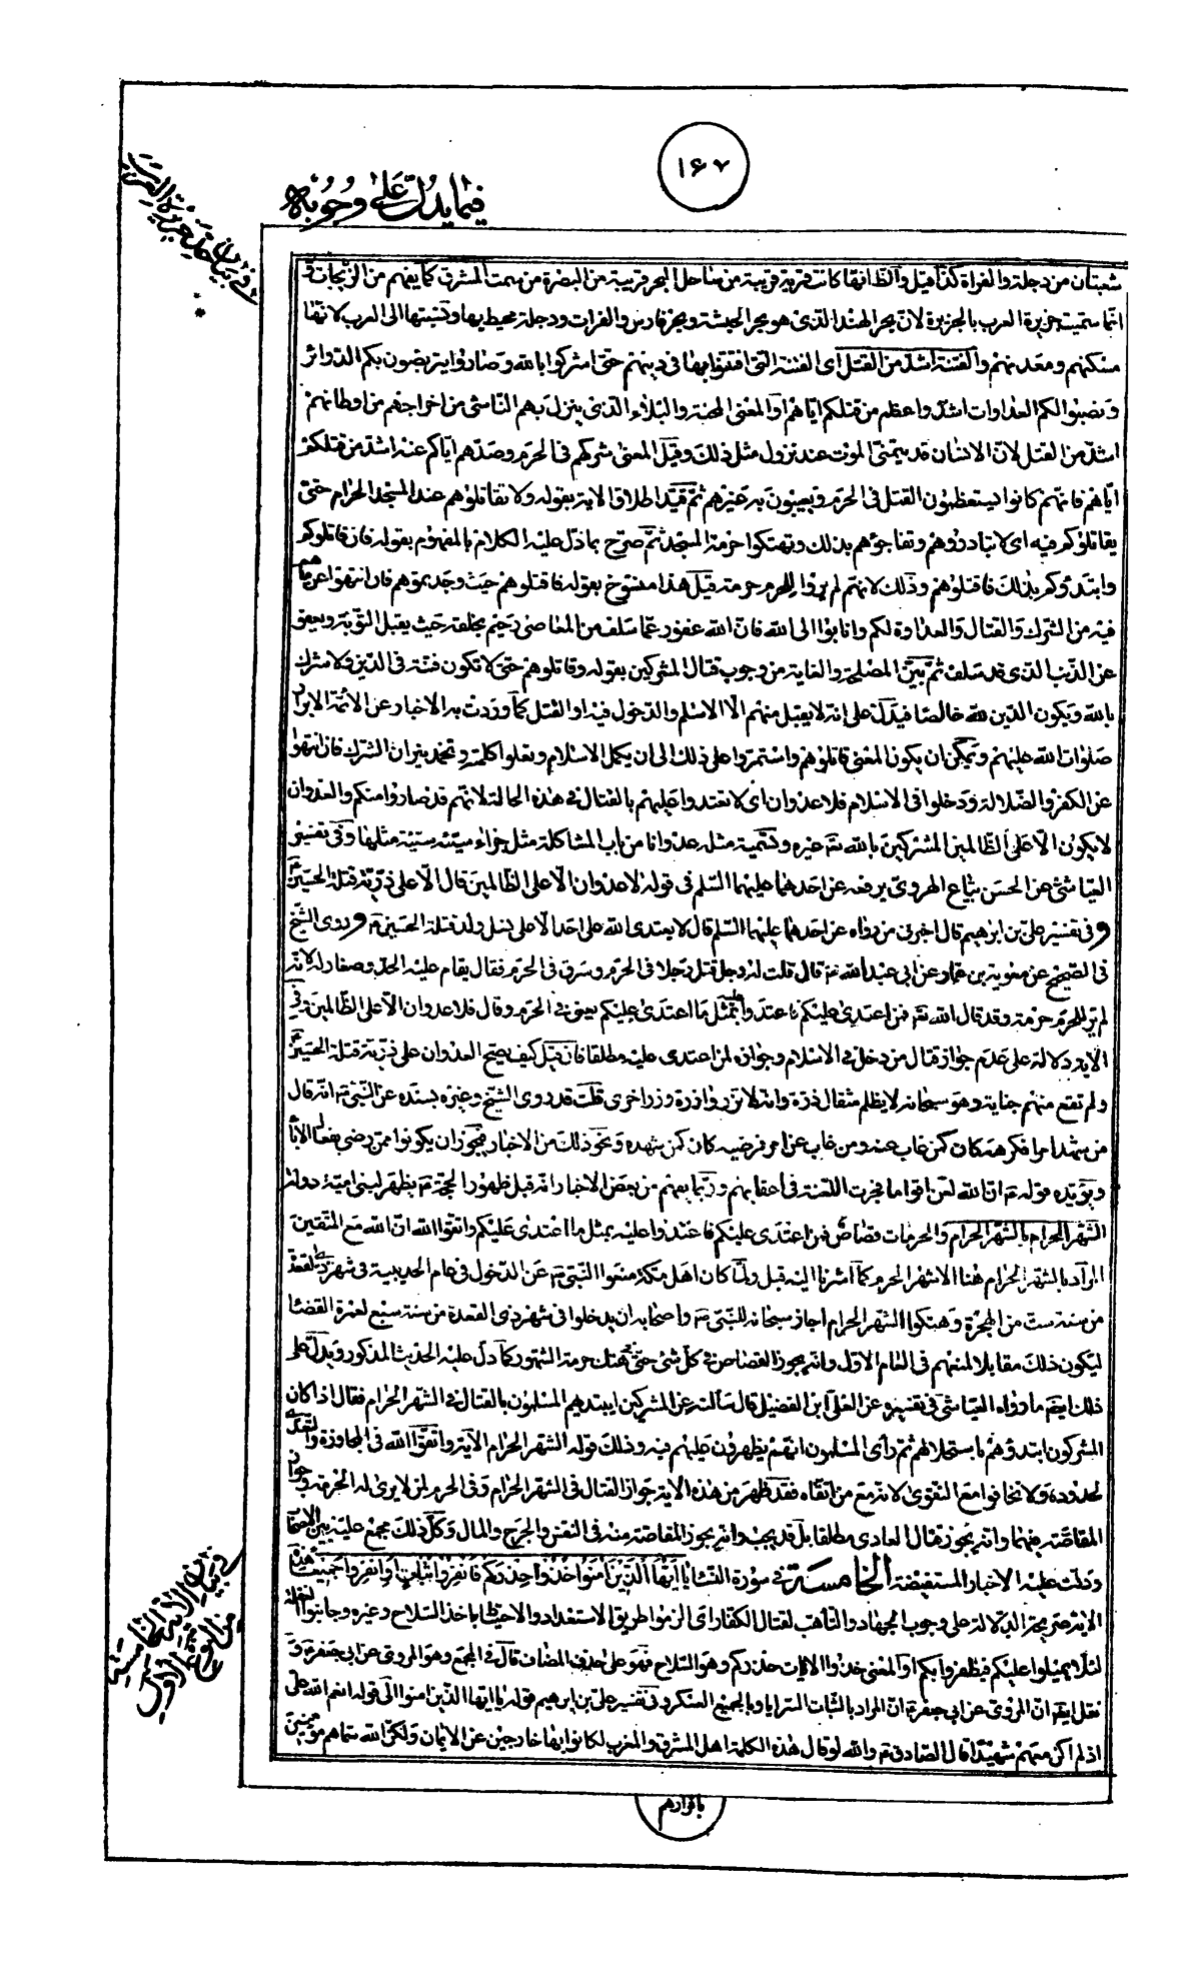 ١٦٧
فيما يدلّ على وجوبه
في بيان حدّ جزيرة العرب
شعبتان من دجلة والفراة كذا قيل والظّ انها كانت قرية قريبة من ساحل البحر قريبة من البصرة من سمت المشرق كما يفهم من الزيجات و
انّما سمّيت جزيرة العرب بالجزيرة لانّ بحر الهند الّذى هو بحر الحبشة وبحر فارس والفرات ودجلة محيط بها ونسبتها الى العرب لانّها
مسكنهم ومعدنهم والفتنة اشدّ من القتل اى الفتنة التى افتتنوا بها فى دينهم حتى اشركوا بالله وصاروا يتربّصون بكم الدّوائر
ونصبوا لكم العداوات اشدّ واعظم من قتلكم ايّاهم او المعنى المحنة والبلاء الّذى ينزل بهم النّاشى من اخراجهم من اوطانهم
اشدّ من القتل لانّ الانسان قد يتمنّى الموت عند نزول مثل ذلك وقيل المعنى شركهم فى الحرم وصدّهم ايّاكم عنه اشدّ من قتلكم
ايّاهم فانّهم كانوا يستعظمون القتل فى الحرم ويعيبون به غيرهم ثمّ قيّد اطلاق الاية بقوله ولا تقاتلوهم عند المسجد الحرام حتّى
يقاتلوكم فيه اى لا تبادروهم وتفاجؤهم بذلك وتهتكوا حرمة المسجد ثمّ صرّح بما دلّ عليه الكلام بالمفهوم بقوله فان قاتلوكم
وابتدؤكم بذلك فاقتلوهم وذلك لانهم لم يروا للحرم حرمة قيل هذا منسوخ بقوله فاقتلوهم حيث وجدتموهم فان انتهوا عمّا هم
فيه من الشرك والقتال والعداوة لكم وانابوا الى الله فانّ الله غفور عمّا سلف من المعاصى رحيم بخلقه حيث يقبل التّوبة ويعفو
عن الذّنب الّذى قد سلف ثمّ بيّن المصلحة والغاية من وجوب قتال المشركين بقوله وقاتلوهم حتى لا تكون فتنة فى الدّين ولا شرك
بالله ويكون الدّين لله خالصا فيدلّ على انه لا يقبل منهم الّا الاسلم والدّخول فيه او القتل كما وردت به الاخبار عن الائمّة الابرار
صلوات الله عليهم ويمكن ان يكون المعنى قاتلوهم واستمرّوا على ذلك الى ان يكمل الاسلام ويعلوا كلمته وتخمد نيران الشرك فان انتهوا
عن الكفر والضّلالة ودخلوا فى الاسلام فلا عدوان اى لا تعتدوا عليهم بالقتال فى هذه الحالة لانّهم قد صاروا منكم والعدوان
لا يكون الّا على الظّالمين المشركين بالله تع غيره وتسمية مثله عدوانا من باب المشاكلة مثل جزاء سيّئة سيّئة مثلها وفى تفسير
العيّاشى عن الحسن بيّاع الهروىّ يرفعه عن احدهما عليهما السّلم فى قوله لا عدوان الّا على الظّالمين قال الّا على ذرّيّة قتلة الحسين ع
وفى تفسير علىّ بن ابرهيم قال اخبرنى من رواه عن احدهما عليهما السّلم قال لا يعتدى الله على احد الّا على نسل ولد قتلة الحسين ع وروى الشّيخ
فى الصّحيح عن معوية بن عمار عن ابى عبد الله ع قال قلت له رجل قتل رجلا فى الحرم وسرق فى الحرم فقال يقام عليه الحدّ وصغار له لانّه
لم ير للحرم حرمة وقد قال الله تع فمن اعتدى عليكم فاعتدوا عليه بمثل ما اعتدى عليكم يعنى فى الحرم وقال فلا عدوان الّا على الظّالمين وفى
الاية دلالة على عدم جواز قتال من دخل فى الاسلام وجوازه لمن اعتدى عليه مطلقا فان قيل كيف يصحّ العدوان على ذرّيّة قتلة الحسين ع
ولم تقع منهم جناية وهو سبحانه لا يظلم مثقال ذرّة وانه لا تزر وازرة وزر اخرى قلت قد روى الشّيخ وغيره بسنده عن النّبىّ ص انّه قال
من شهد امرا فكرهه كان كمن غاب عنه ومن غاب عن امر فرضيه كان كمن شهده ونحو ذلك من الاخبار فيجوز ان يكونوا ممّن رضى بفعال الاباء
ويؤيّده قوله ع انّ الله لعن اقواما فجرت اللعنة فى اعقابهم وربّما يفهم من بعض الاخبار انّه قبل ظهور الحجّة ع يظهر لبنى اميّة دولة
الشّهر الحرام بالشّهر الحرام والحرمات قصاص فمن اعتدى عليكم فاعتدوا عليه بمثل ما اعتدى عليكم واتّقوا الله انّ الله مع المتّقين
المراد بالشّهر الحرام هنا الاشهر الحرم كما اشرنا اليه قبل ولمّا كان اهل مكّة منعوا النّبىّ ص عن الدّخول فى عام الحديبية فى شهر ذى القعدة
من سنة ستّ من الهجرة وهتكوا الشّهر الحرام اجاز سبحانه للنّبىّ ص واصحابه ان يدخلوا فى شهر ذى القعدة من سنة سبع لعمرة القضاء
ليكون ذلك مقابلا لمنعهم فى العام الاوّل وانه يجوز القصاص فى كلّ شئ حتى هتك حرمة الشهور كما دلّ عليه الحديث المذكور ويدلّ على
ذلك ايضا ما رواه العيّاشى فى تفسيره عن العلى ابن الفضيل قال سألته عن المشركين ايبتدئهم المسلمون بالقتال فى الشّهر الحرام فقال اذا كان
المشركون ابتدؤهم باستحلالهم ثمّ رأى المسلمون انّهم يظهرون عليهم فيه وذلك قوله الشّهر الحرام الآية واتّقوا الله فى المجاوزة والتعدّى
لحدوده ولا تخافوا مع التّقوى لانّه مع من اتّقاه فقد ظهر من هذه الاية جواز القتال فى الشّهر الحرام وفى الحرم لمن لا يرى له الحرمة وجواز
المقاصّة فيهما وانه يجوز قتال العادى مطلقا بل قد يجب وانه يجوز المقاصّة منه فى النفس والجرح والمال وكلّ ذلك مجمع عليه بين الاصحاب
ودلّت عليه الاخبار المستفيضة الخامسة فى سورة النساء يا ايّها الّذين آمنوا خذوا حذركم فانفروا ثبات او انفروا جميعا هذه
الاية صريحة الدّلالة على وجوب الجهاد والتأهّب لقتال الكفّار اى الزموا طريق الاستعداد والاحتياط باخذ السّلاح وغيره وجانبوا الغفلة
لئلّا يميلوا عليكم فيظفروا بكم او المعنى خذوا الات حذركم وهو السّلاح فهو على حذف المضاف قال فى المجمع وهو المروىّ عن ابى جعفر ع و
نقل ايضا انّ المروىّ عن ابى جعفر ع انّ المراد بالثبات السّرايا وبالجميع العسكر وفى تفسير علىّ بن ابرهيم قوله يا ايّها الّذين امنوا الى قوله انعم الله علىّ
اذ لم اكن معهم شهيدا قال الصّادق ع والله لو قال هذه الكلمة اهل المشرق والمغرب لكانوا بها خارجين عن الايمان ولكن الله سمّاهم مؤمنين
في بيان الآية الخامسة
من النوع الاوّل
باقرارهم